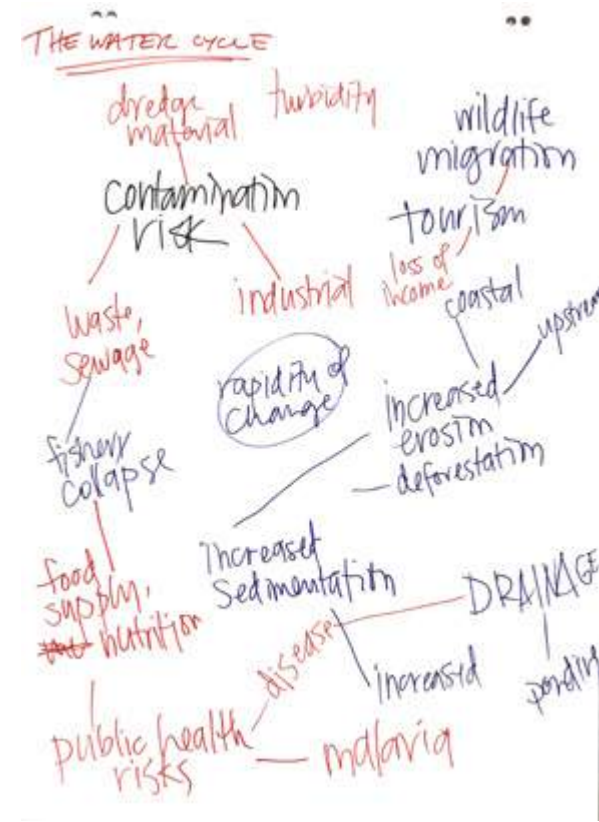 THE WATER CYCLE
dredge
material
turbidity
wildlife
migration
contamination
risk
tourism
loss of
income
industrial
coastal
waste,
sewage
rapidity of
change
increased
erosion
deforestation
fishery
collapse
increased
sedimentation
food
supply,
nutrition
DRAINAGE
disease
increased
public health
risks
malaria